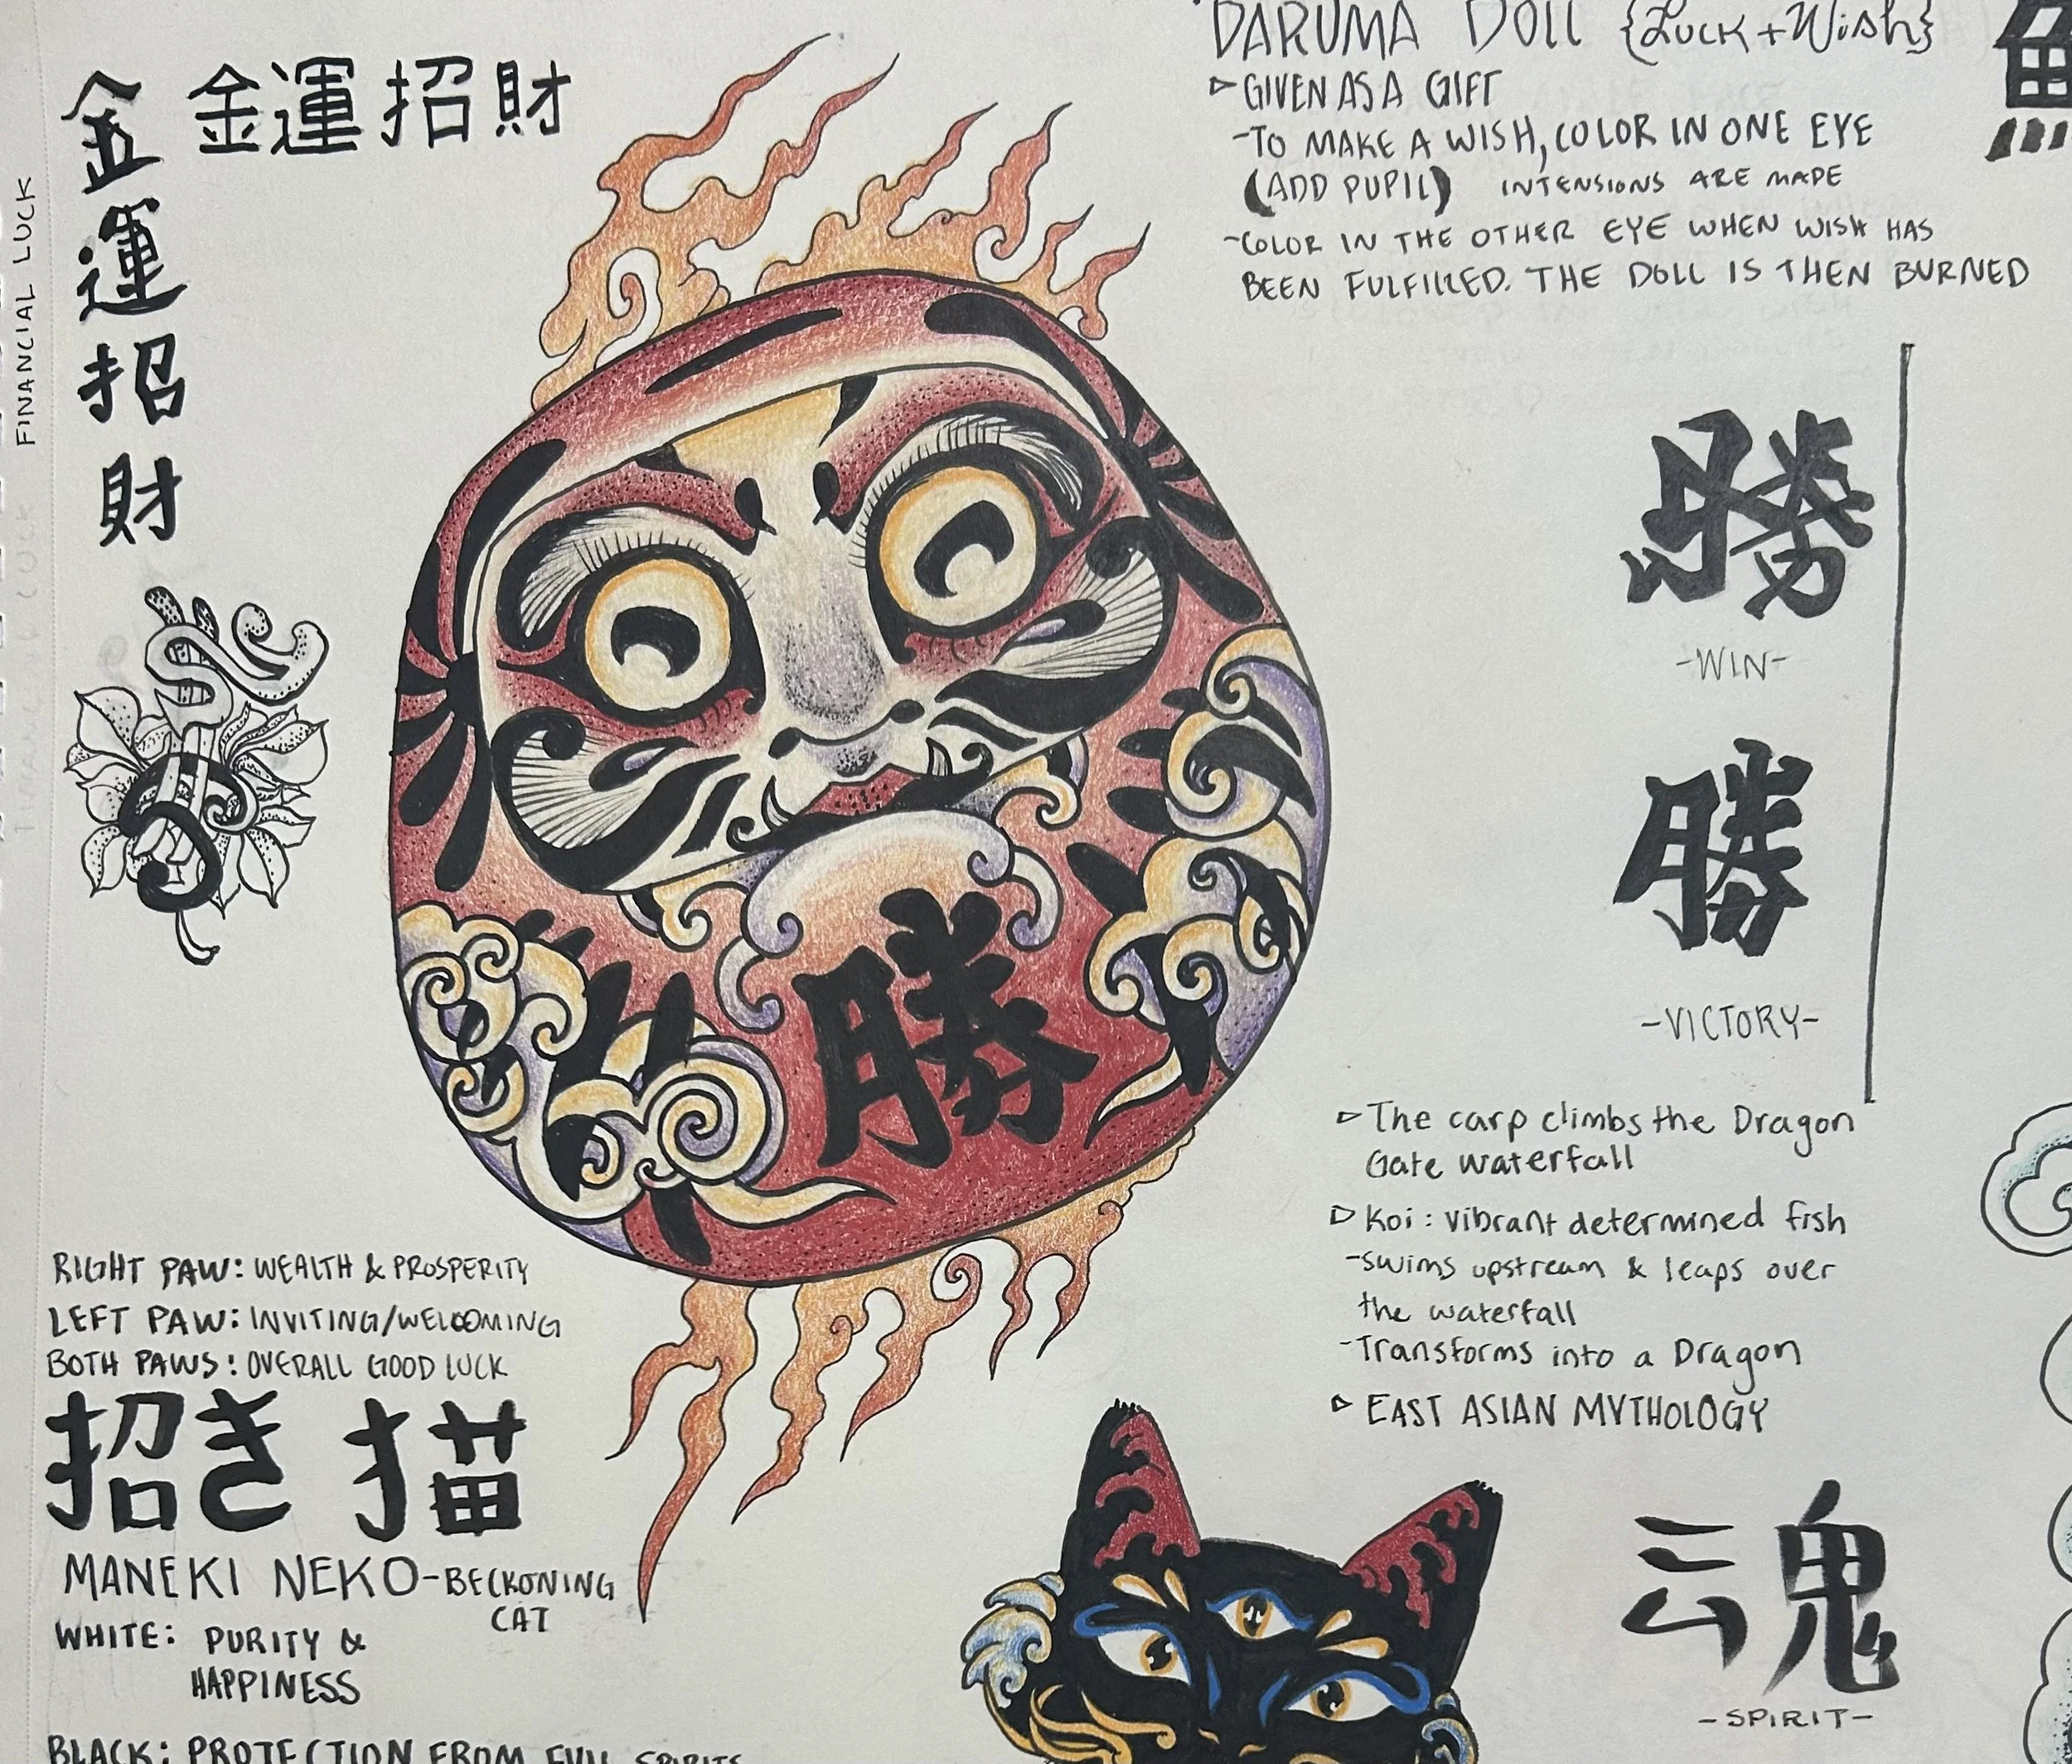 金運招財
金運招財
FINANCIAL LUCK
DARUMA DOLL {LUCK + WISH}
GIVEN AS A GIFT
-TO MAKE A WISH, COLOR IN ONE EYE
(ADD PUPIL) INTENSIONS ARE MADE
-COLOR IN THE OTHER EYE WHEN WISH HAS
BEEN FULFILLED. THE DOLL IS THEN BURNED
勝
-WIN-
勝
-VICTORY-
勝
The carp climbs the Dragon
Gate waterfall
Koi: vibrant determined fish
-swims upstream & leaps over
the waterfall
-Transforms into a Dragon
EAST ASIAN MYTHOLOGY
RIGHT PAW: WEALTH & PROSPERITY
LEFT PAW: INVITING/WELCOMING
BOTH PAWS: OVERALL GOOD LUCK
招き描
MANEKI NEKO-BECKONING
CAT
WHITE: PURITY &
HAPPINESS
BLACK: PROTECTION FROM EVIL SPIRITS
魂
-SPIRIT-